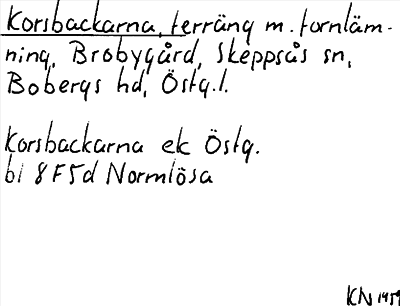 Korsbackarna, terräng m. fornläm-
ning, Brobygård, Skeppsås sn,
Bobergs hd, Östg.l.
Korsbackarna ek Östg.
bl 8F5d Normlösa
KN 1959